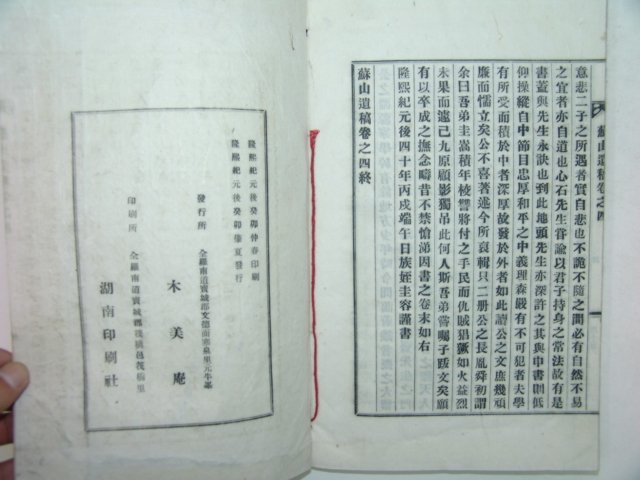 意悲二子之所遇者實自悲也不詭不隨之間必有自然不易
之宜者亦自道也心石先生嘗諭以君子持身之常法故有是
書蓋與先生永訣也到此地頭先生亦深許之其與申書則低
仰操縱自中節目忠厚和平之中義理森嚴有不可犯者夫學
有所受而積於中者深厚故發於外者如此讀公之文庶幾頑
廉而懦立矣公不喜著述今所裒輯只二册公之長胤舜初謂
余曰吾弟圭嵩積年校讐將付之手民而仇賊猖獗如火益烈
未果而遽已九原顧影獨吊此何人斯吾弟嘗囑子跋文矣願
有以卒成之撫念疇昔不禁愴涕因書之卷末如右
隆熙紀元後四十年丙戌端午日族姪圭容謹書
蘇山遺稿卷之四終
蘇山遺稿卷之四
隆熙紀元後癸卯仲春印刷
隆熙紀元後癸卯肇夏發行
發行所
全羅南道寶城郡文德面
木美庵
印刷所
全羅南道寶城郡筏橋邑筏橋里
湖南印刷社